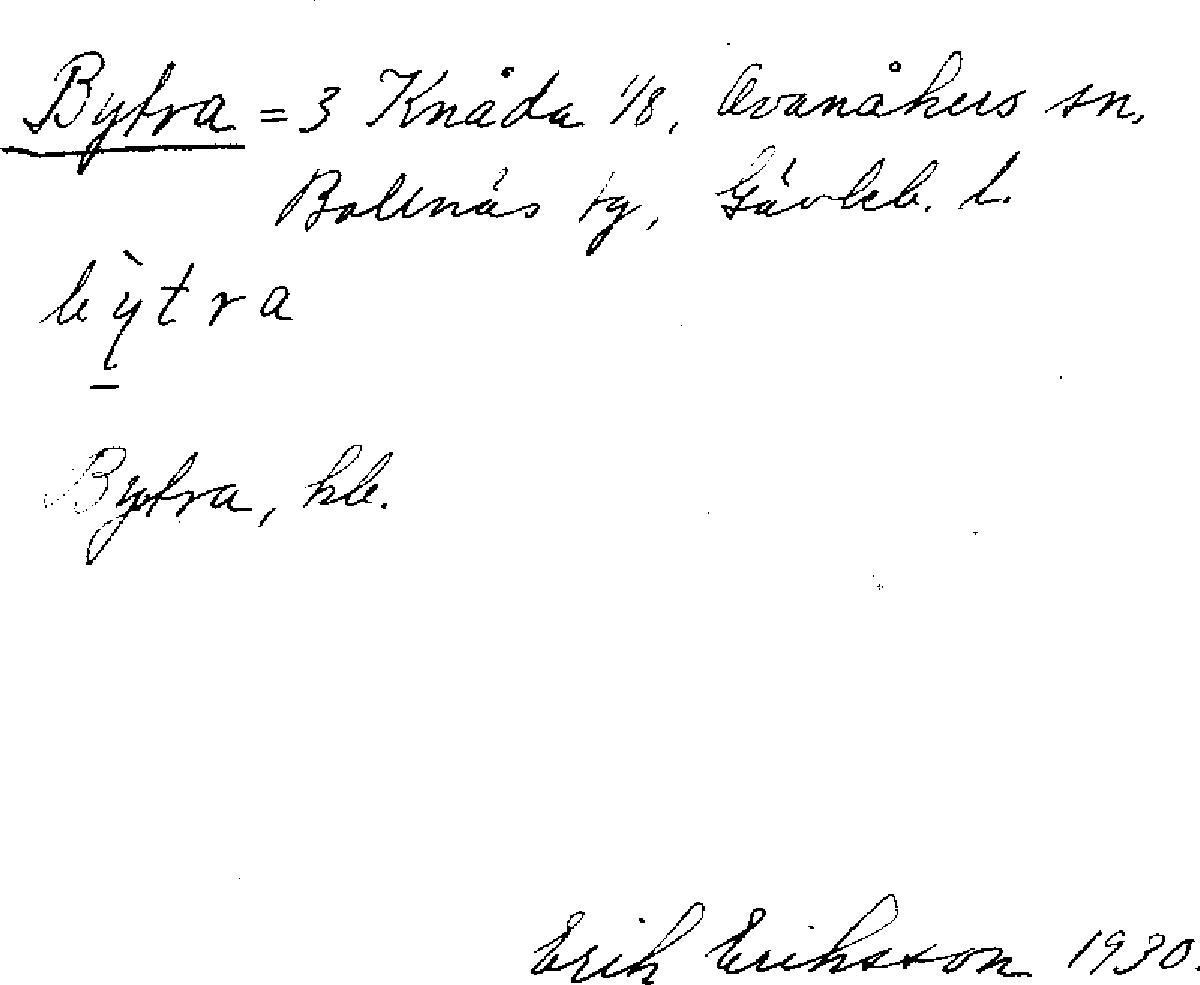 Bytra = 3 Knåda 1/8, Ovanåkers sn,
Bollnäs tg, Gävleb. l.
bỳtra
Bytra, hb.
Erik Eriksson 1930.